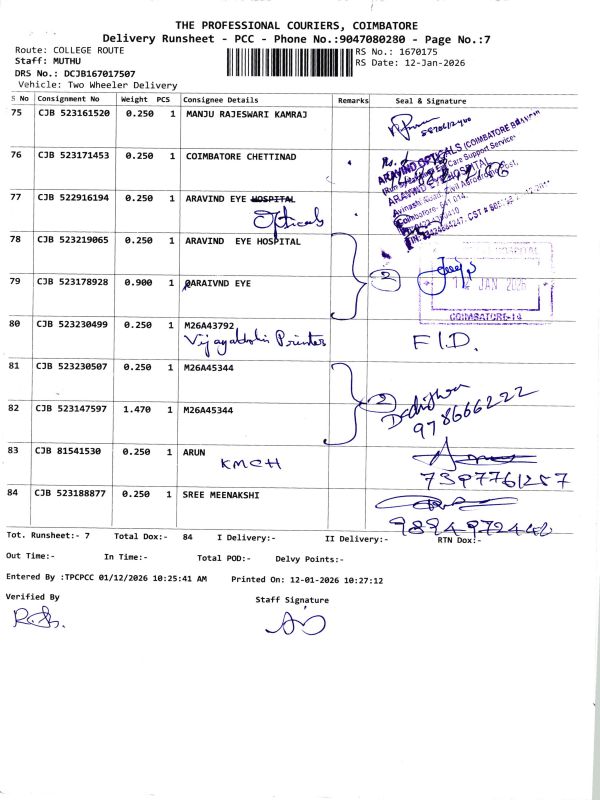 THE PROFESSIONAL COURIERS, COIMBATORE
Delivery Runsheet - PCC - Phone No.:9047080280 - Page No.:7
Route: COLLEGE ROUTE
RS No.: 1670175
Staff: MUTHU
RS Date: 12-Jan-2026
DRS No.: DCJB167017507
Vehicle: Two Wheeler Delivery
S No Consignment No Weight PCS Consignee Details Remarks Seal & Signature
75 CJB 523161520 0.250 1 MANJU RAJESWARI KAMRAJ
76 CJB 523171453 0.250 1 COIMBATORE CHETTINAD
ARAVIND OPTICALS (COIMBATORE BRANCH)
ARAVIND EYE HOSPITAL
Avinashi Road, Civil Aerodrome Post,
Coimbatore- 641 014.
77 CJB 522916194 0.250 1 ARAVIND EYE HOSPITAL
Opticals
78 CJB 523219065 0.250 1 ARAVIND EYE HOSPITAL
2
79 CJB 523178928 0.900 1 QARAIVND EYE
12 JAN 2026
COIMBATORE-14
80 CJB 523230499 0.250 1 M26A43792
Vijayalakshmi Printers
F I.D.
81 CJB 523230507 0.250 1 M26A45344
2
978666222
82 CJB 523147597 1.470 1 M26A45344
83 CJB 81541530 0.250 1 ARUN
KMCH
7397761257
84 CJB 523188877 0.250 1 SREE MEENAKSHI
9894972440
Tot. Runsheet:- 7 Total Dox:- 84 I Delivery:- II Delivery:- RTN Dox:-
Out Time:- In Time:- Total POD:- Delvy Points:-
Entered By :TPCPCC 01/12/2026 10:25:41 AM Printed On: 12-01-2026 10:27:12
Verified By
Staff Signature